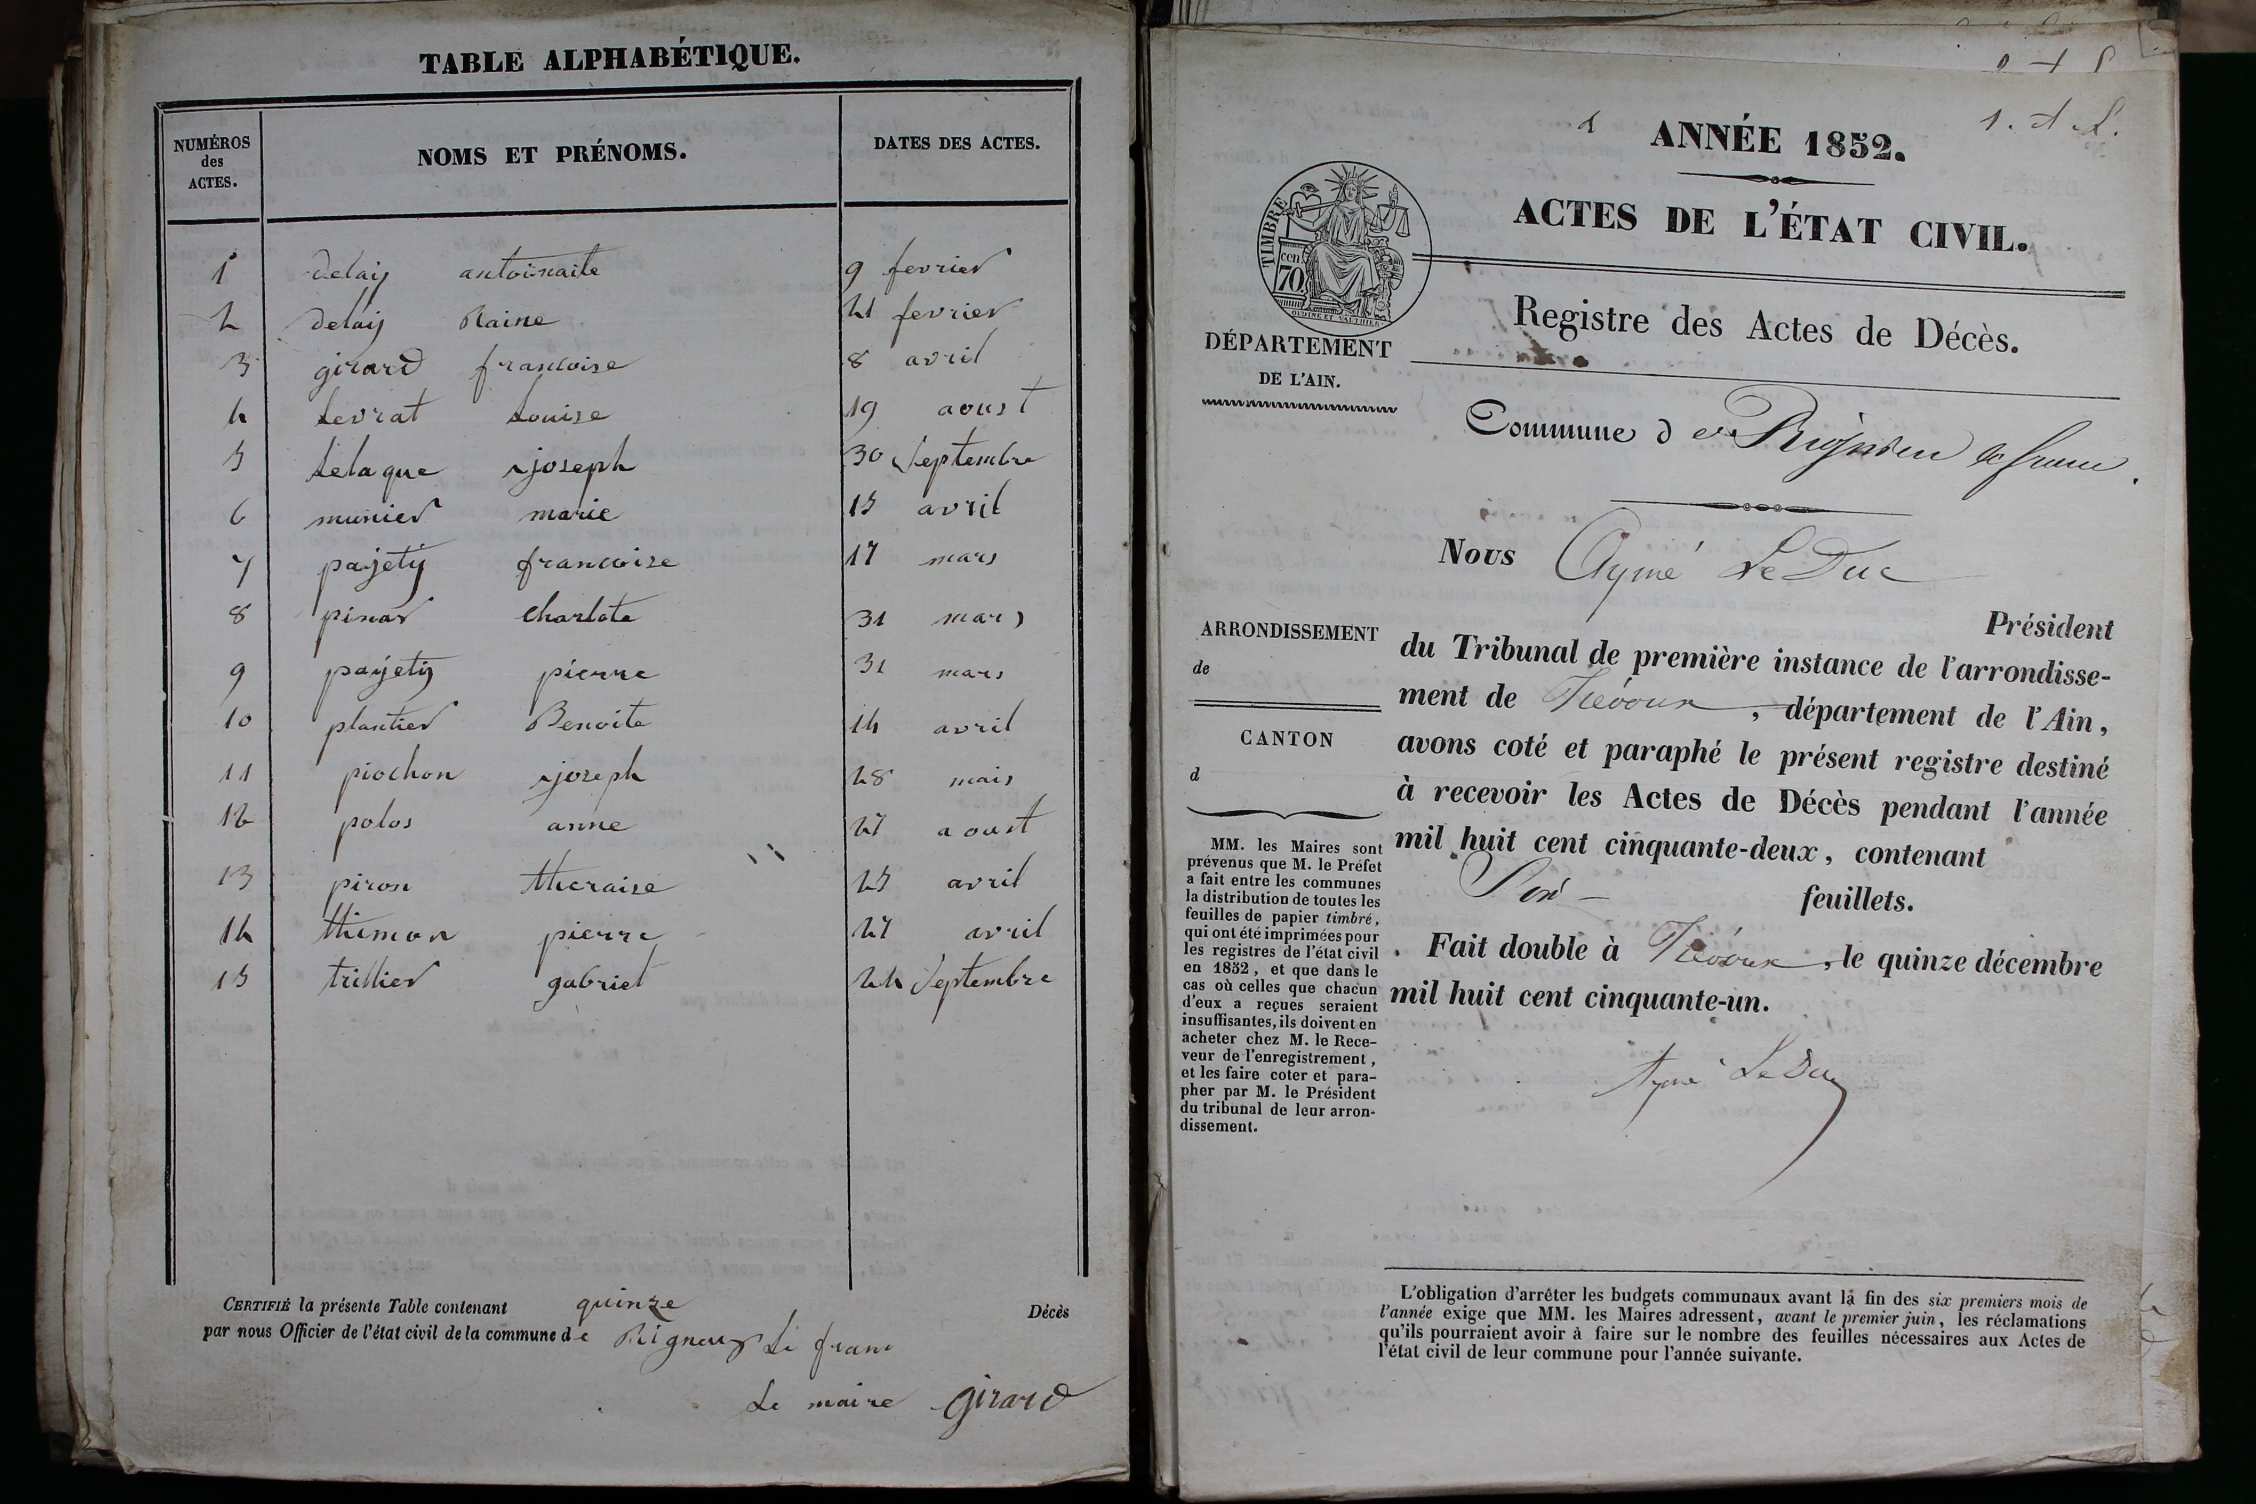 TABLE ALPHABÉTIQUE.
NUMÉROS
des
ACTES.
NOMS ET PRÉNOMS.
DATES DES ACTES.
1 delaij antoinaite 9 fevrier
2 delaij Raine 21 fevrier
3 girard francoise 8 avril
4 Levrat Louise 19 aoust
5 Lelaque joseph 30 Septembre
6 munier marie 15 avril
7 paijetij francoise 17 mars
8 pinar Charlote 31 mars
9 paijetij pierre 31 mars
10 plantier Benoite 14 avril
11 piochon joseph 28 mars
12 polos anne 27 aoust
13 piron theraise 25 avril
14 thimon pierre 27 avril
15 trillier gabriel 24 Septembre
CERTIFIÉ la présente Table contenant quinze Décès
par nous Officier de l'état civil de la commune de Rigneux Le franc
Le maire girard
ANNÉE 1852.
ACTES DE L'ÉTAT CIVIL.
TIMBRE
cen
70
OUDINE ET GAUTHIER
Registre des Actes de Décès.
DÉPARTEMENT
DE L'AIN.
Commune de Rignieu le franc.
Nous Aymé Le Duc
Président
ARRONDISSEMENT
de
CANTON
d
du Tribunal de première instance de l'arrondisse-
ment de Trévoux, département de l'Ain,
avons coté et paraphé le présent registre destiné
à recevoir les Actes de Décès pendant l'année
mil huit cent cinquante-deux, contenant
feuillets.
Fait double à Trévoux, le quinze décembre
mil huit cent cinquante-un.
Aymé Le Duc
MM. les Maires sont
prévenus que M. le Préfet
a fait entre les communes
la distribution de toutes les
feuilles de papier timbré,
qui ont été imprimées pour
les registres de l'état civil
en 1852, et que dans le
cas où celles que chacun
d'eux a reçues seraient
insuffisantes, ils doivent en
acheter chez M. le Rece-
veur de l'enregistrement,
et les faire coter et para-
pher par M. le Président
du tribunal de leur arron-
dissement.
L'obligation d'arrêter les budgets communaux avant la fin des six premiers mois de
l'année exige que MM. les Maires adressent, avant le premier juin, les réclamations
qu'ils pourraient avoir à faire sur le nombre des feuilles nécessaires aux Actes de
l'état civil de leur commune pour l'année suivante.